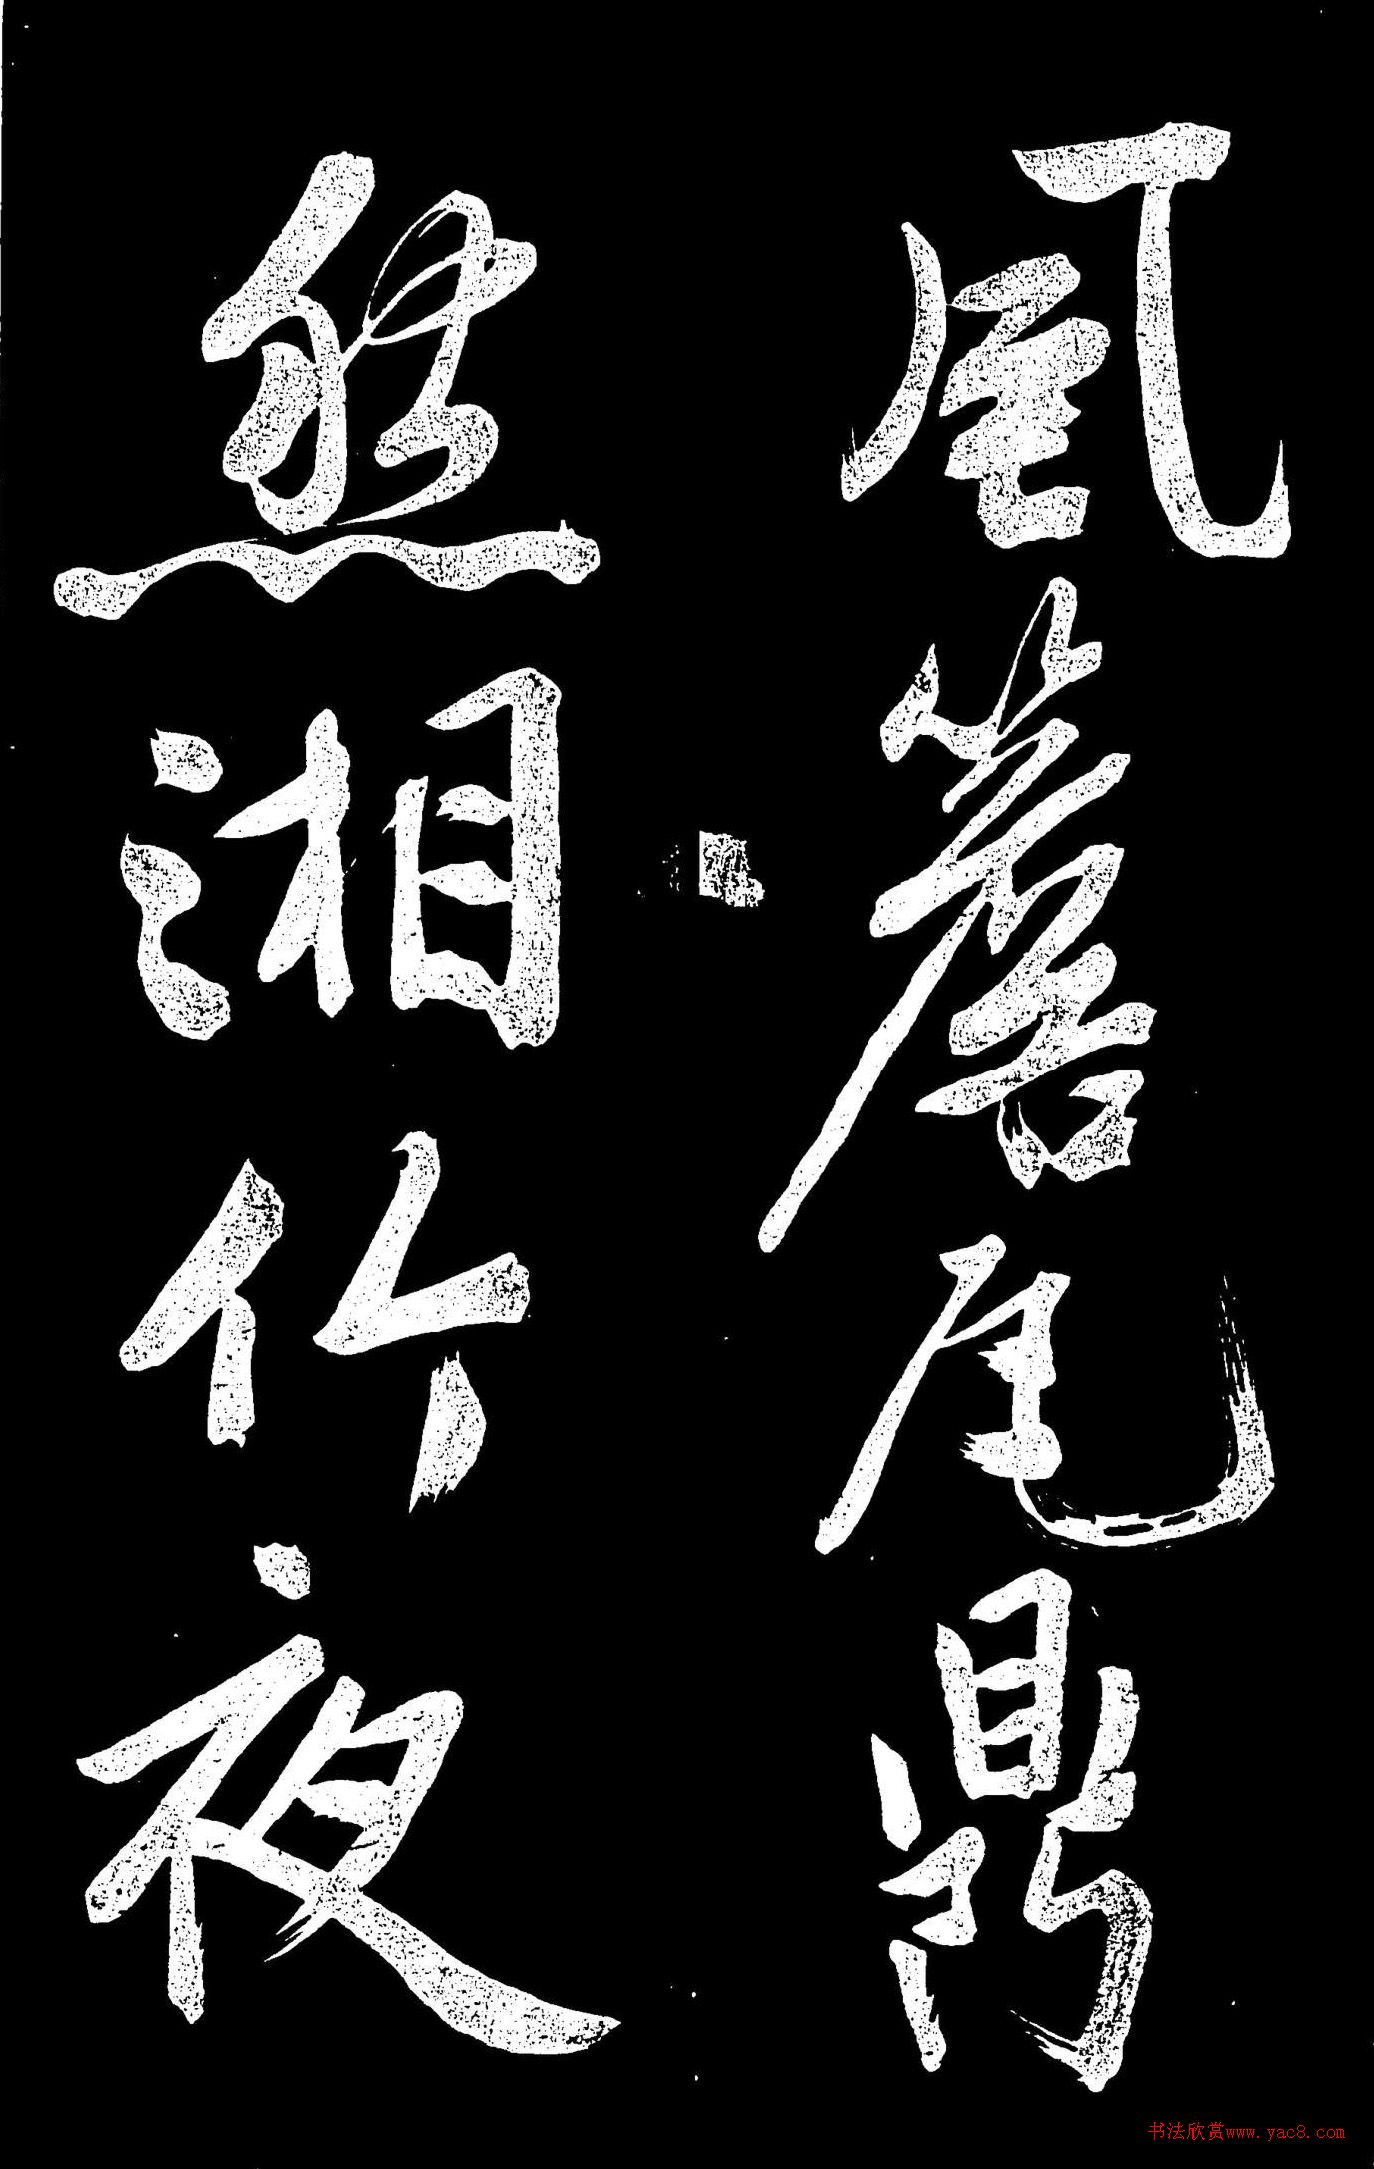 風簷瓦鼎
然湘竹夜
书法欣赏www.yac8.com